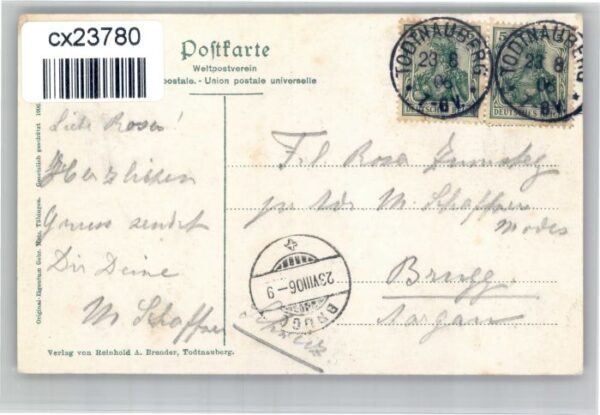 cx23780
Postkarte
Weltpostverein
postale. - Union postale universelle
TODTNAUBERG
TODTNAUBERG
Liebe Rosa!
Herzlichen
Gruss sendet
Dir Deine
M Schaffner
Frl. Rosa
M. Schaffner
Modes
Brugg
Aargau
Schweiz
23.VIII.06-9
BRUGG
Original-Eigentum Gebr. Metz, Tübingen. Gesetzlich geschützt 190
Verlag von Reinhold A. Brender, Todtnauberg.